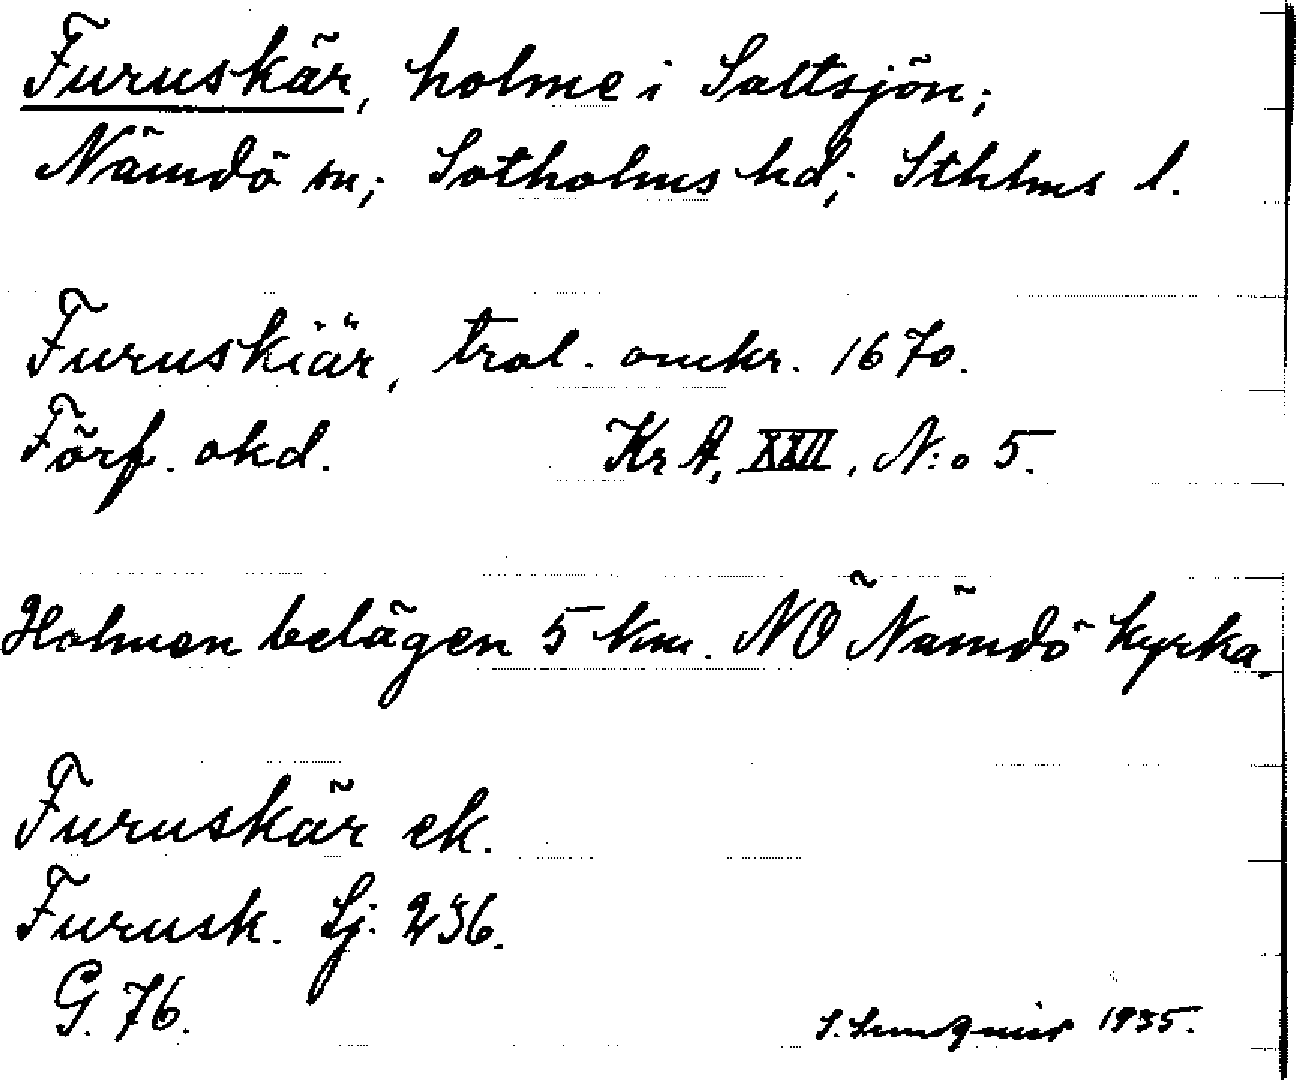 Furuskär, holme i Saltsjön;
Nämdö sn; Sotholms hd; Sthlms l.
Furuskiär, trol. omkr. 1670.
Förf. okd. Kr A, XXII, N:o 5.
Holmen belägen 5 km. NO Nämdö kyrka.
Furuskär ek.
Furusk. Sj. 236.
G. 76.
S. Lundqvist 1935.